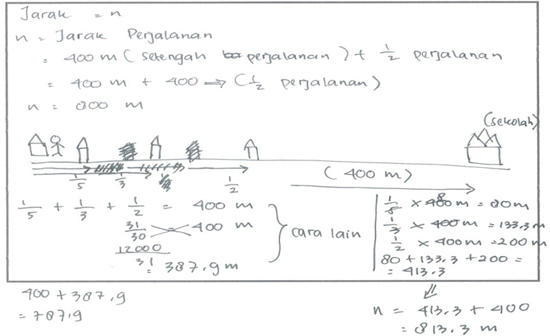 Jarak = n
n = Jarak Perjalanan
= 400 m ( setengah perjalanan ) + 1/2 perjalanan
= 400 m + 400 → ( 1/2 perjalanan )
n = 800 m
(sekolah)
1/5 1/3 1/2 ( 400 m )
1/5 + 1/3 + 1/2 = 400 m
31/30 400 m
12000/31 = 387.9 m
cara lain
1/5 × 400 m = 80 m
1/3 × 400 m = 133,3 m
1/2 × 400 m = 200 m
80 + 133,3 + 200 =
= 413.3
400 + 387,9
= 787,9
n = 413,3 + 400
= 813.3 m